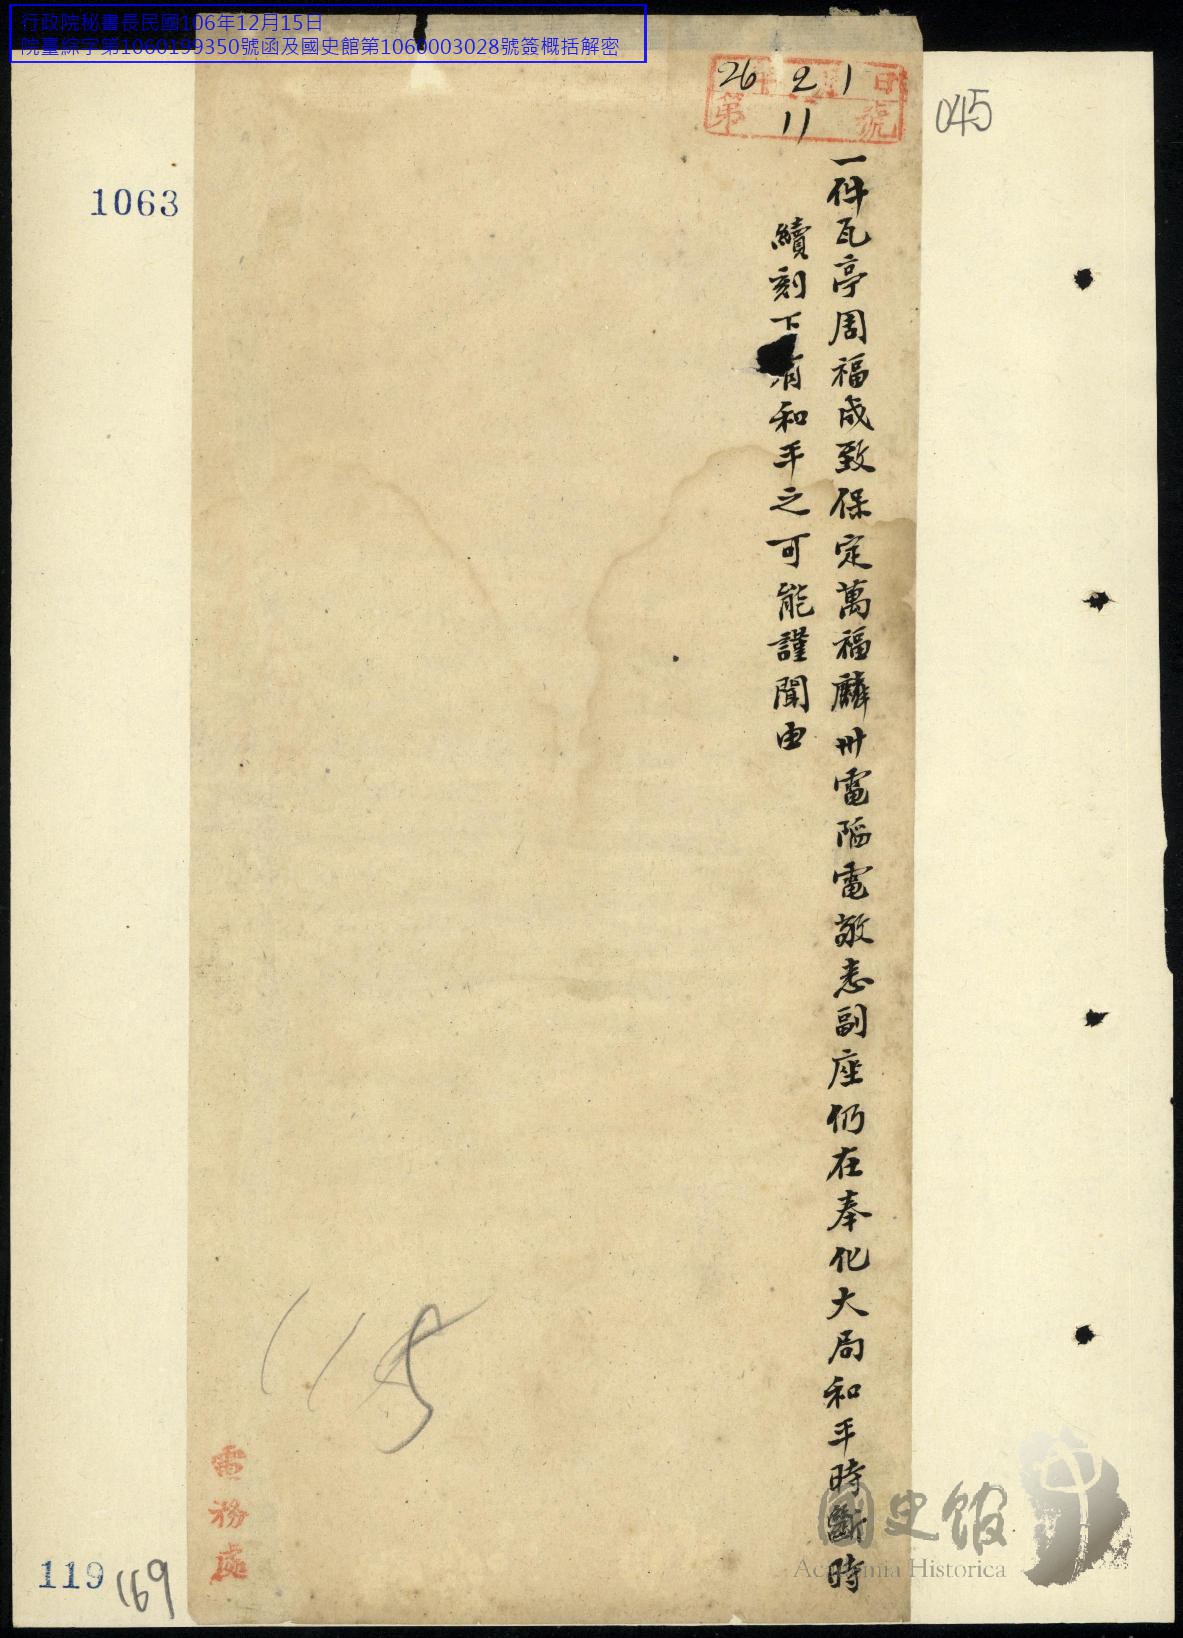 行政院秘書長民國106年12月15日
院臺綜字第1060199350號函及國史館第1060003028號簽概括解密
26 2 1 日
第 11 號
045
1063
一件瓦亭周福成致保定萬福麟卅電陷電敬悉副座仍在奉化大局和平時斷時
續刻下有和平之可能謹聞由
115
電務處
119
169
國史館
Academia Historica